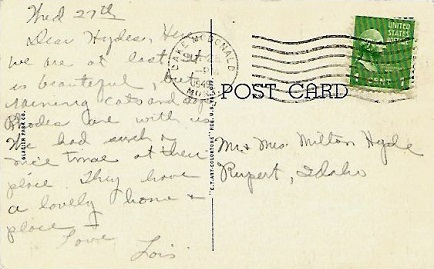 Wed 27th
Dear Hydes, Here
we are at last. It
is beautiful, but
raining cats and dogs
Rhodes are with us
We had such a
nice time at their
place. They have
a lovely home &
place
Love
Lois
LAKE MCDONALD
1949
UNITED STATES
1 CENT 1
POST CARD
Mr & Mrs Milton Hyde
Rupert, Idaho
GLACIER PARK CO.